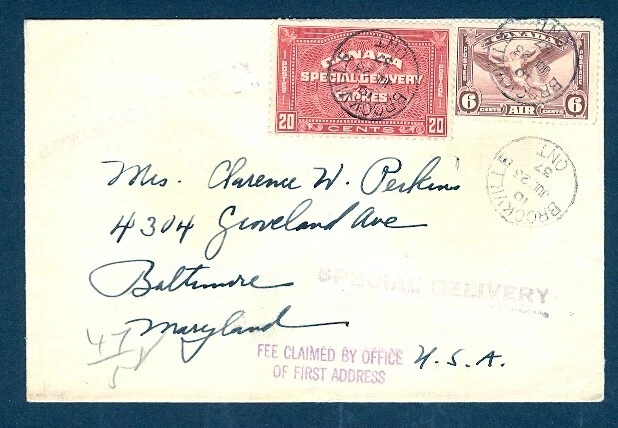 CANADA
POSTES POSTAGE
SPECIAL DELIVERY
EXPRES
20 CENTS 20
CANADA
POSTES POSTAGE
6 CENTS AIR CENTS 6
BROCKVILLE
10
JUL 23
37
ONT
Mrs. Clarence W. Perkins
4304 Groveland Ave
Baltimore
SPECIAL DELIVERY
Maryland
47
5
FEE CLAIMED BY OFFICE
OF FIRST ADDRESS
U.S.A.